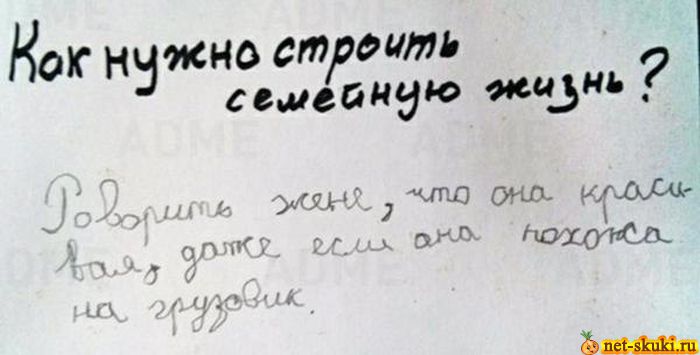 Как нужно строить
семейную жизнь?
Говорить жене, что она краси-
вая, даже если она похожа
на грузовик.
net-skuki.ru